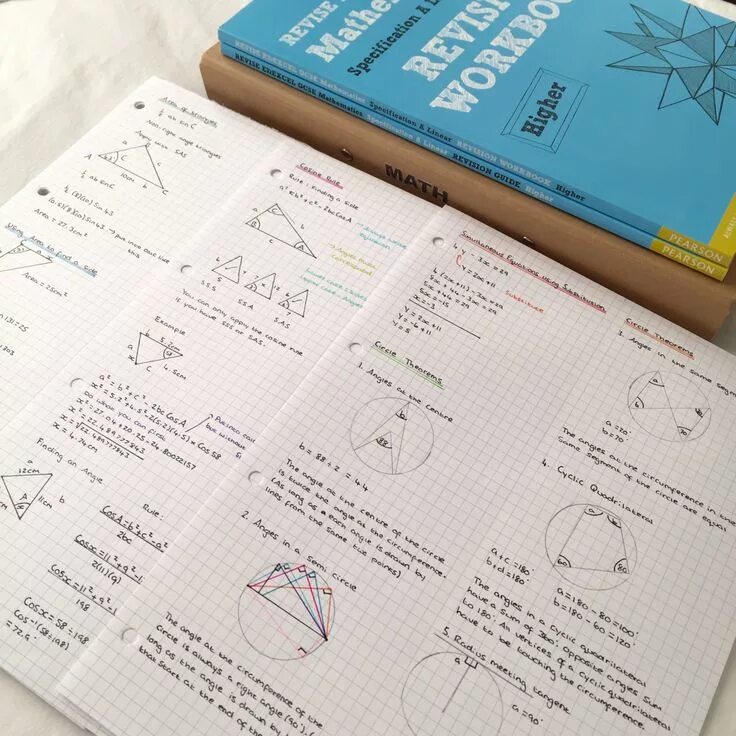 REVISE
Mathe
Specification & Linear
REVISI
WORKBOO
Higher
REVISE EDEXCEL GCSE Mathematics Specification A Linear REVISION WORKBOOK Higher
REVISE EDEXCEL GCSE Mathematics Specification A Linear REVISION GUIDE Higher
PEARSON
PEARSON
MATH
Area of triangles
½ ab sin C
Non-right angle triangles
Apply with SAS
a
b
A
B
C
10cm
½ ab sin C
½ (8)(10) sin 43
(0.5)(8)(10) sin 43
Area = 27.3cm²
→ put into calc like this
Using Area to find a side
Area = 25cm²
Cosine Rule
Rule: Finding a side
a² = b² + c² - 2bc Cos A
SSS
SSA
SAS
You can only apply the cosine rule
if you have SSS or SAS.
Example
5.2cm
58
4.5cm
a² = b² + c² - 2bc Cos A
x² = 5.2² + 4.5² - 2(5.2)(4.5) × Cos 58
Do what you can first
x² = 27.04 + 20.25 - 24.80022157
x² = 22.48977843
x = √22.48977843
x = 4.74cm
Finding an Angle
a
12cm
b
11cm
A
x
Rule:
Cos A = b² + c² - a²
2bc
Cos x = 11² + 9² - 1
2(11)(9)
Cos x = 11² + 9² - 1
198
Cos x = 58 ÷ 198
Cos⁻¹(58 ÷ 198)
= 72.9°
Simultaneous Equations using Substitution
4y - 3x = 29
y = 2x + 11
Substitute
4(2x + 11) - 3x = 29
8x + 44 - 3x = 29
5x + 44 = 29
5x = -15
x = -3
y = 2x + 11
y = -6 + 11
y = 5
Circle Theorems
1. Angles at the centre
b
88
b = 88 ÷ 2 = 44
The angle at the centre of the circle
is twice the angle at the circumference.
(As long as each angle is drawn by
lines from the same two points)
2. Angles in a semi circle
The angle at the circumference of the
circle is always a right angle (90°), (
long as the angle is drawn by
that start at the end of the
Circle Theorems
3. Angles in the same segm
a
b
70
a = 70°
b = 70°
The angles at the circumference in the
same segment of the circle are equal
4. Cyclic Quadrilateral
a
b
60
80
a + c = 180°
b + d = 180°
a = 180 - 80 = 100°
b = 180 - 60 = 120°
The angles in a cyclic quadrilateral
have a sum of 360° opposite angles sum
to 180°. All vertices of a cyclic quadrilateral
have to be touching the circumference.
5. Radius meeting tangent
a
a = 90°